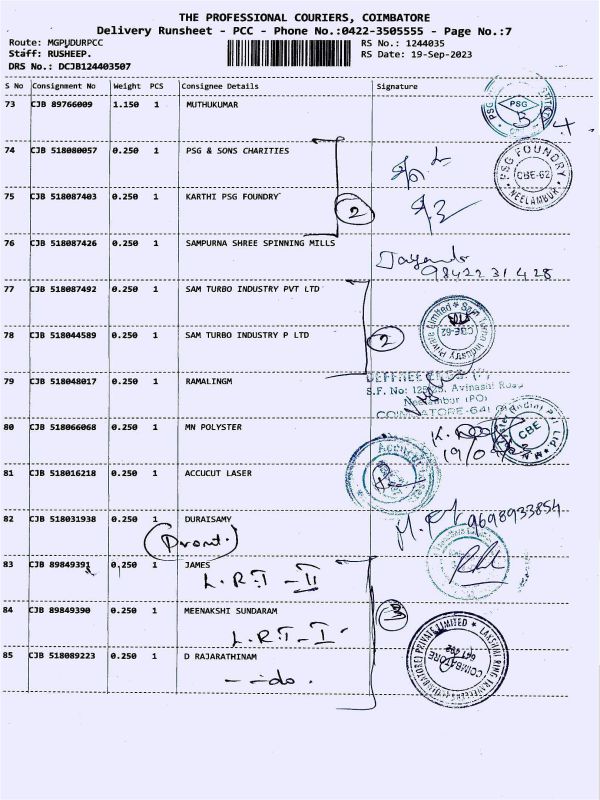 THE PROFESSIONAL COURIERS, COIMBATORE
Delivery Runsheet - PCC - Phone No.:0422-3505555 - Page No.:7
Route: MGPUDURPCC RS No.: 1244035
Staff: RUSHEEP. RS Date: 19-Sep-2023
DRS No.: DCJB124403507
S No Consignment No Weight PCS Consignee Details Signature
73 CJB 89766009 1.150 1 MUTHUKUMAR
PSG
74 CJB 518080057 0.250 1 PSG & SONS CHARITIES
PSG FOUNDRY
CBE-62
NEELAMBUR
75 CJB 518087403 0.250 1 KARTHI PSG FOUNDRY
2
76 CJB 518087426 0.250 1 SAMPURNA SHREE SPINNING MILLS
98422 31428
77 CJB 518087492 0.250 1 SAM TURBO INDUSTRY PVT LTD
Sam Turbo Industry Private Limited
CBE-62
78 CJB 518044589 0.250 1 SAM TURBO INDUSTRY P LTD
2
79 CJB 518048017 0.250 1 RAMALINGM
Avinashi Road
Neelambur (PO)
COIMBATORE-641
80 CJB 518066068 0.250 1 MN POLYSTER
CBE
81 CJB 518016218 0.250 1 ACCUCUT LASER
Accucut Laser
82 CJB 518031938 0.250 1 DURAISAMY
9698933854
83 CJB 89849391 0.250 1 JAMES
L.R.T - II
84 CJB 89849390 0.250 1 MEENAKSHI SUNDARAM
3
L.R.T - I
85 CJB 518089223 0.250 1 D RAJARATHINAM
LAKSHMI RING TRAVELLERS (COIMBATORE) PRIVATE LIMITED
COIMBATORE
641 402
- - do .